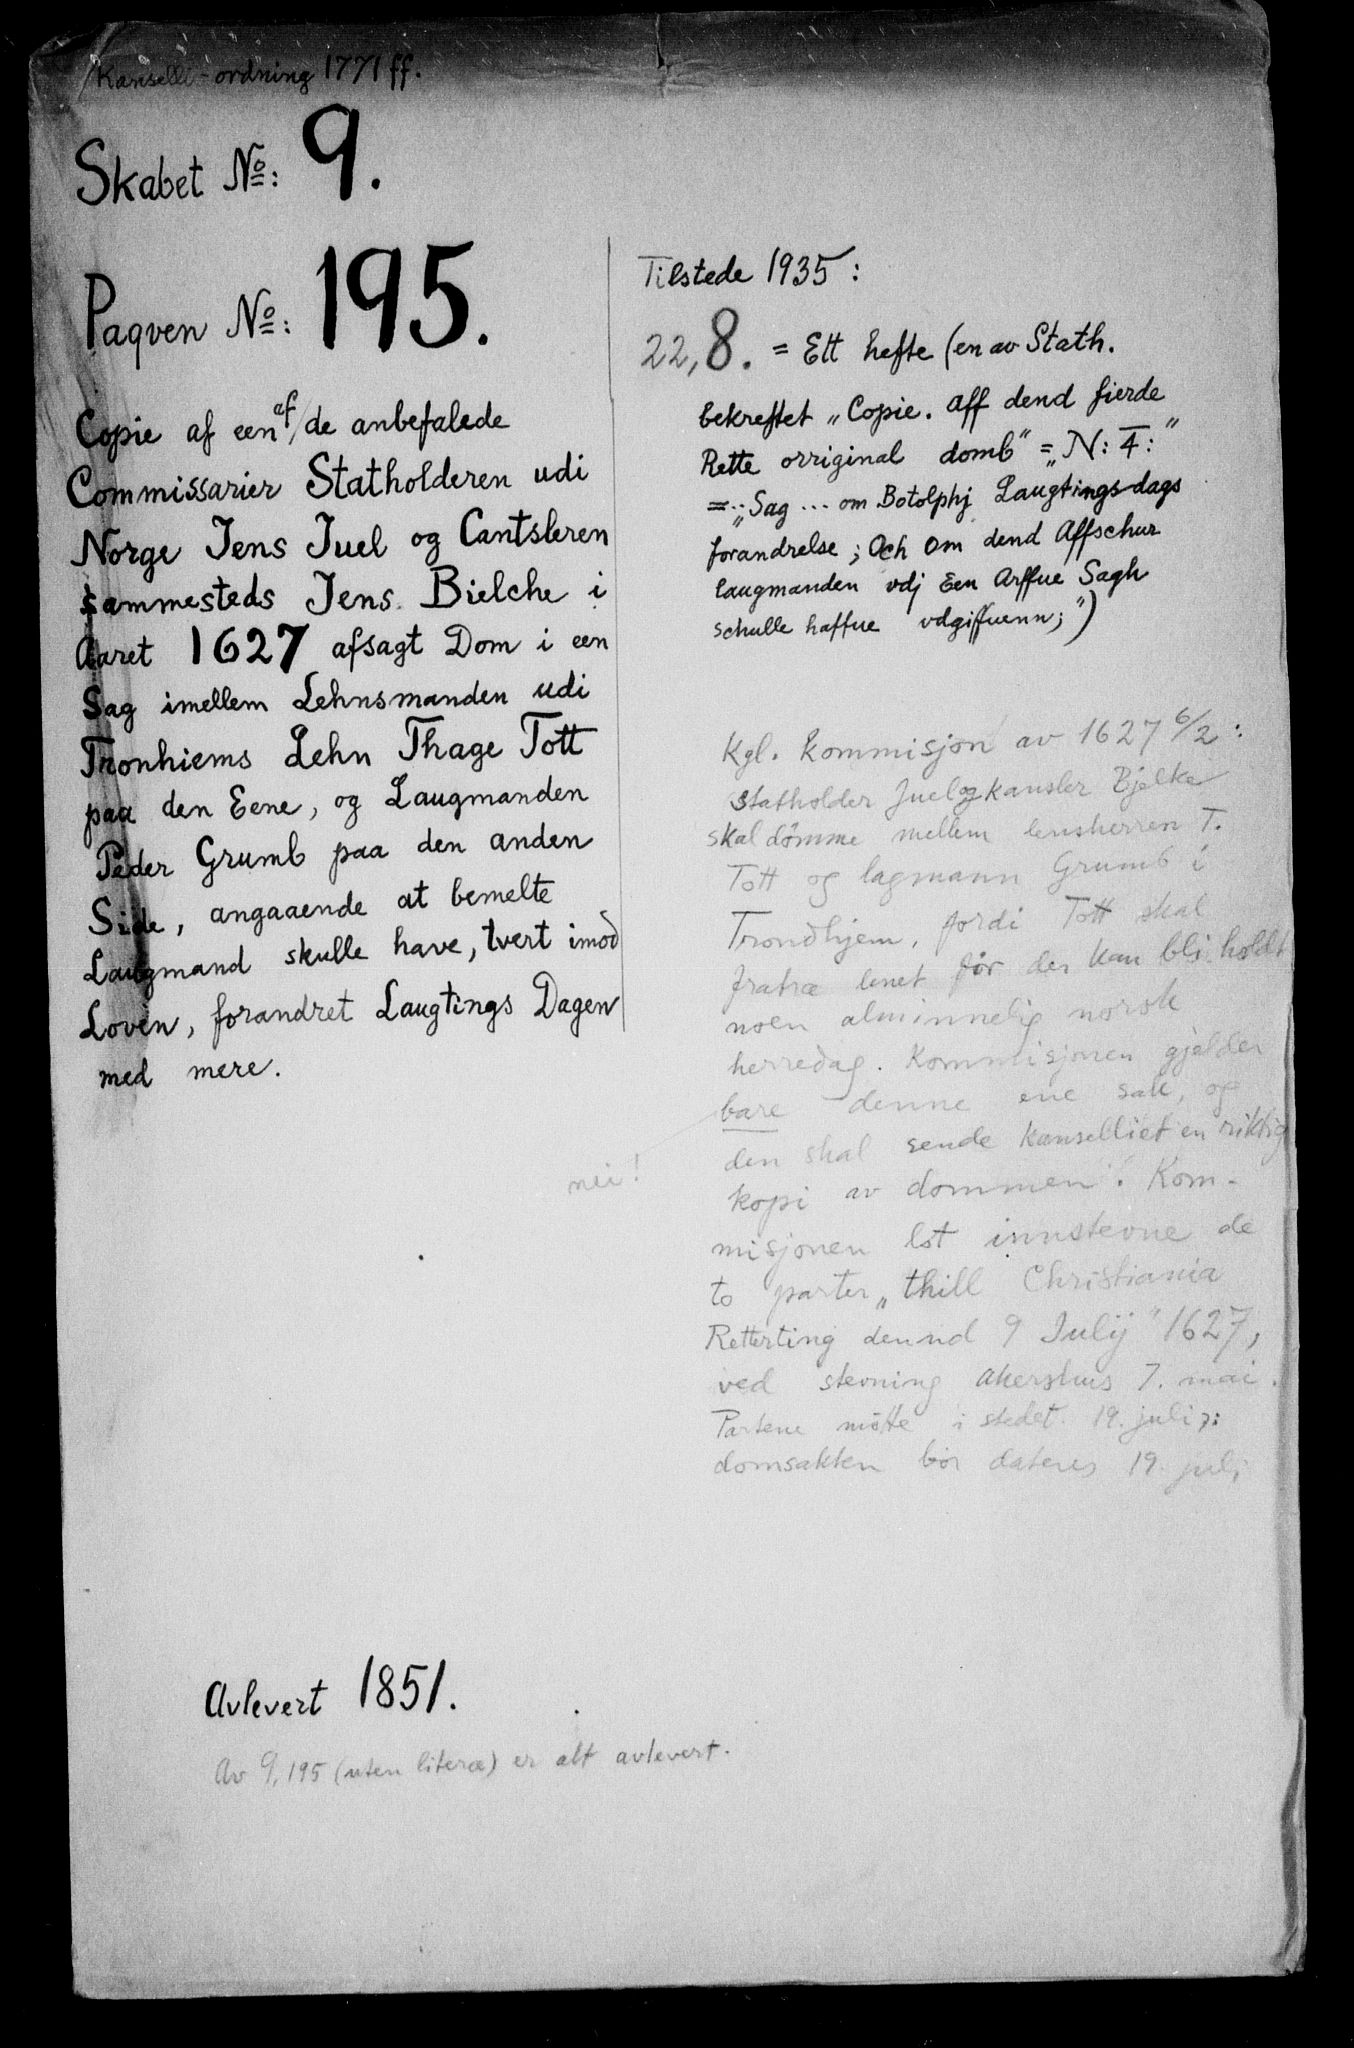 Kanselli-ordning 1771 ff.
Skabet No: 9.
Paqven No: 195.
Copie af een af/de anbefalede
Commissarier Statholderen udi
Norge Jens Juel og Cantsleren
sammesteds Jens Bielche i
Aaret 1627 afsagt Dom i een
Sag imellem Lehnsmanden udi
Tronhiems Lehn Thage Tott
paa den Eene, og Laugmanden
Peder Grumb paa den anden
Side, angaaende at bemelte
Laugmand skulle have, tvert imod
Loven, forandret Laugtings Dagen
med mere.
Tilstede 1935:
22,8. = Ett hefte (en av Stath.
bekreftet „Copie. aff dend fierde
Rette orriginal domb" = „N: 4:"
= „Sag ... om Botolphj Laugtings-dags
forandrelse; Och om dend Affschur
laugmanden vdj Een Arffue Sagh
schulle haffue vdgiffuenn;")
Kgl. kommisjon av 1627 6/2:
Statholder Juel og kansler Bjelke
skal dømme mellem lensherren T.
Tott og lagmann Grumb i
Trondhjem, fordi Tott skal
fratræ lenet før der kan bli holdt
noen alminnelig norsk
herredag. Kommisjonen gjelder
bare denne ene sak, og
den skal sende kanselliet en riktig
nei!
kopi av dommen. Kom-
misjonen lot innstevne de
to parter „thill Christiania
Retterting dennd 9 Julij" 1627,
ved stevning Akershus 7. mai.
Partene møtte i stedet 19. juli ɔ:
domsakten bør dateres 19. juli
Avlevert 1851.
Av 9,195 (uten literæ) er alt avlevert.